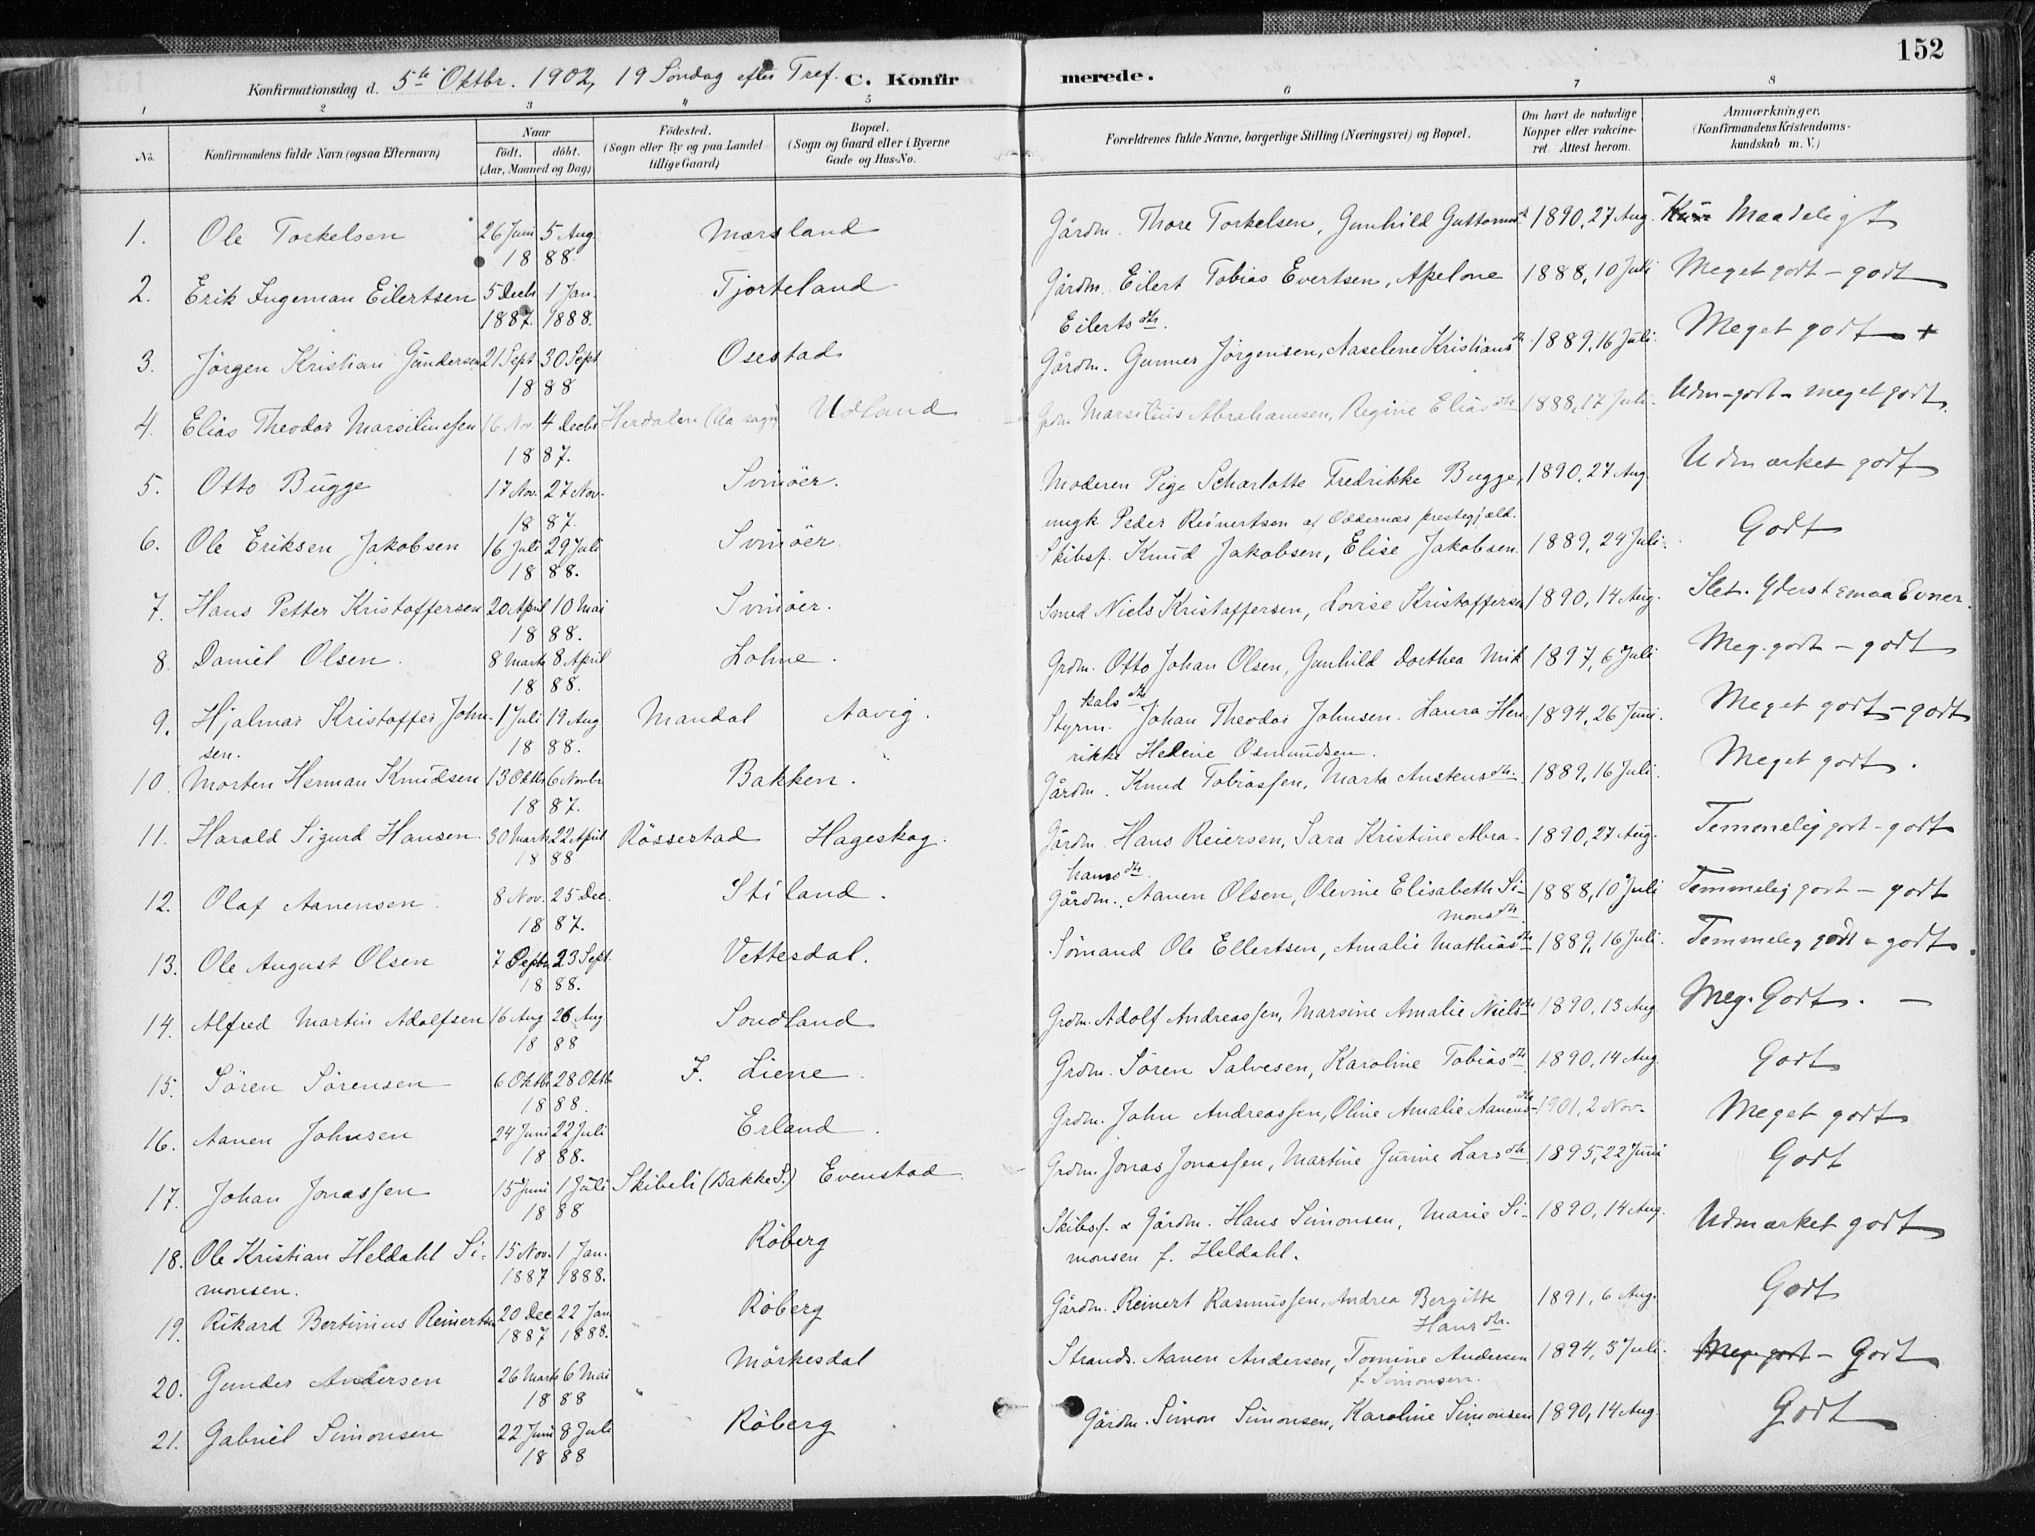 152
Konfirmationsdag d. 5te Oktbr. 1902, 19 Söndag efter Tref. C. Konfirmerede.
1 2 3 4 5 6 7 8
No. Konfirmandens fulde Navn (ogsaa Efternavn) Naar födt. döbt. (Aar, Maaned og Dag) Födested. (Sogn eller By og paa Landet tillige Gaard) Bopæl. (Sogn og Gaard eller i Byerne Gade og Hus-No. Forældrenes fulde Navne, borgerlige Stilling (Næringsvei) og Bopæl. Om havt de naturlige Kopper eller vakcineret. Attest herom. Anmærkninger. (Konfirmandens Kristendomskundskab m. V.)
1. Ole Torkelsen 26 Juni 5 Aug. 1888 Marsland Gårdm. Thore Torkelsen, Gunhild Guttormsdt 1890, 27 Aug. Maadeligt
2. Erik Ingeman Eilertsen 5 Decbr 1887. 1 Jan. 1888. Tjorteland Gårdm. Eilert Tobias Evertsen, Apelone Eilertsdtr. 1888, 10 Juli Meget godt - godt
3. Jørgen Kristian Gundersen 21 Sept 30 Sept 1888 Osestad Gårdm. Gunner Jørgensen, Aaselene Kristiansdt 1889, 16 Juli. Meget godt +
4. Elias Theodor Marsiliussen 16 Nov 4 Decbr 1887. Herdalen (Aa sogn) Udland Grdm Marsilius Abrahamsen, Regine Eliasdtr 1888, 17 Juli. Udm-godt - meget godt.
5. Otto Bugge 17 Nov. 27 Nov. 1887. Svinöer. Moderen Pige Scharlotte Fredrikke Bugge, ungk. Peder Reinertsen af Oddernæs prestegjæld. 1890, 27 Aug. Udmærket godt
6. Ole Eriksen Jakobsen 16 Juli 29 Juli 1888. Svinöer. Skibsf. Knud Jakobsen, Elise Jakobsen 1889, 24 Juli. Godt
7. Hans Petter Kristoffersen 20 April 10 Mai 1888. Svinöer. Smed Niels Kristoffersen, Lovise Kristoffersen 1890, 14 Aug. Slet. Yderst smaa Evner.
8. Daniel Olsen. 8 Marts 8 April 1888. Lohne. Grdm. Otto Johan Olsen, Gunhild Dorthea Mikkalsdtr 1897, 6 Juli Meg. godt - godt
9. Hjalmar Kristoffer Johnsen. 1 Juli 19 Aug 1888. Mandal Aavig. Styrm. Johan Theodor Johnsen. Laura Henrikke Helene Osmundsen. 1894, 26 Juni. Meget godt - godt
10. Morten Herman Knudsen 13 Oktb 6 Novbr 1887. Bakken. Gårdm. Knud Tobiassen, Marta Austensdtr. 1889, 16 Juli. Meget godt.
11. Harald Sigurd Hansen 30 Marts 22 April 1888 Rössestad Hageskog. Gårdm Hans Reiersen, Sara Kristine Abrahamsdtr. 1890, 27 Aug. Temmelig godt - godt
12. Olaf Aanensen. 8 Nov. 25 Dec. 1887. Stiland. Gårdm. Aanen Olsen, Olevine Elisabeth Simonsdtr 1888, 10 Juli Temmelig godt - godt
13. Ole August Olsen 7 Septr 23 Sept. 1888. Vettesdal. Sömand Ole Ellertsen, Amalie Mathiasdtr 1889, 16 Juli. Temmelig godt - godt.
14. Alfred Martin Adolfsen 16 Aug 26 Aug 1888 Sondland Grdm. Adolf Andreassen, Marsine Amalie Nielsdtr 1890, 13 Aug Meg. Godt. -
15. Sören Sörensen 6 Oktb 28 Oktb 1888. F. Liene. Grdm. Sören Salvesen, Karoline Tobiasdtr 1890, 14 Aug. Godt
16. Aanen Johnsen 24 Juni 22 Juli 1888. Erland. Grdm. John Andreassen, Oline Amalie Aanensdtr 1901, 2 Nov. Meget godt
17. Johan Jonassen 15 Juni 1 Juli 1888 Skibeli (Bakke S.) Evenstad. Grdm. Jonas Jonassen, Martine Gurine Larsdtr 1895, 22 Juni Godt
18. Ole Kristian Heldahl Simonsen. 15 Nov. 1887 1 Jan. 1888. Röberg Skibsf. & Gårdm. Hans Simonsen, Marie Simonsen f. Heldahl. 1890, 14 Aug. Udmærket godt
19. Rikard Bertinius Reinertsen 20 Dec 1887 22 Jan 1888. Röberg Gårdm. Reinert Rasmussen, Andrea Bergitte Hansdtr. 1891, 6 Aug. Godt
20. Gunder Andersen 26 Marts 6 Mai 1888 Mörkesdal Strands. Aanen Andersen, Tomine Andersen f. Simonsen. 1894, 3 Juli. Meg. godt - Godt
21. Gabriel Simonsen 22 Juni 8 Juli 1888 Röberg Gårdm. Simon Simonsen, Karoline Simonsen 1890, 14 Aug. Godt